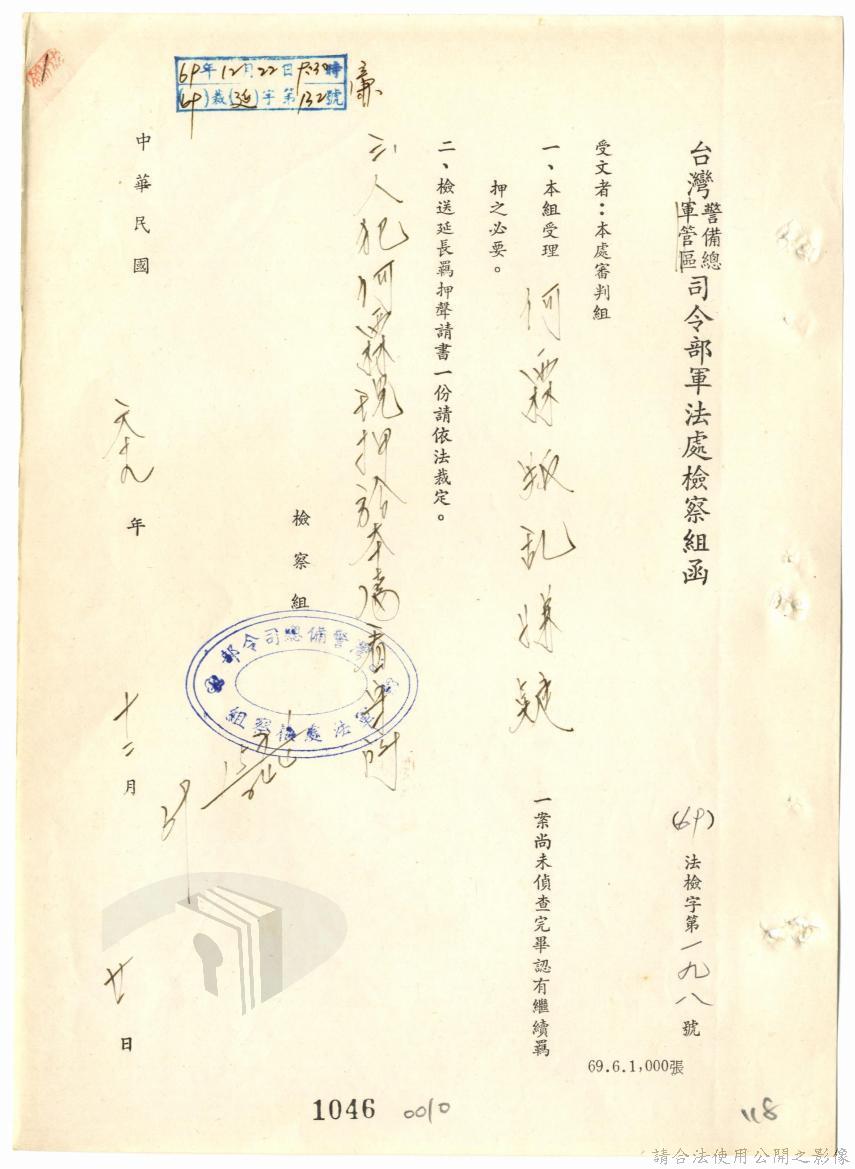 台灣警備總軍管區司令部軍法處檢察組函
(69)法檢字第一九八號
受文者：本處審判組
一、本組受理何霖叛乱嫌疑一案尚未偵查完畢認有繼續羈
押之必要。
二、檢送延長羈押聲請書一份請依法裁定。
三、人犯何霖現押於本處看守所
檢察組
台灣警備總司令部
軍法處檢察組
中華民國六十九年十二月廿日
69年12月22日 時
(69)裁(延)字第132號
69.6.1,000張
1046
0010
118
請合法使用公開之影像